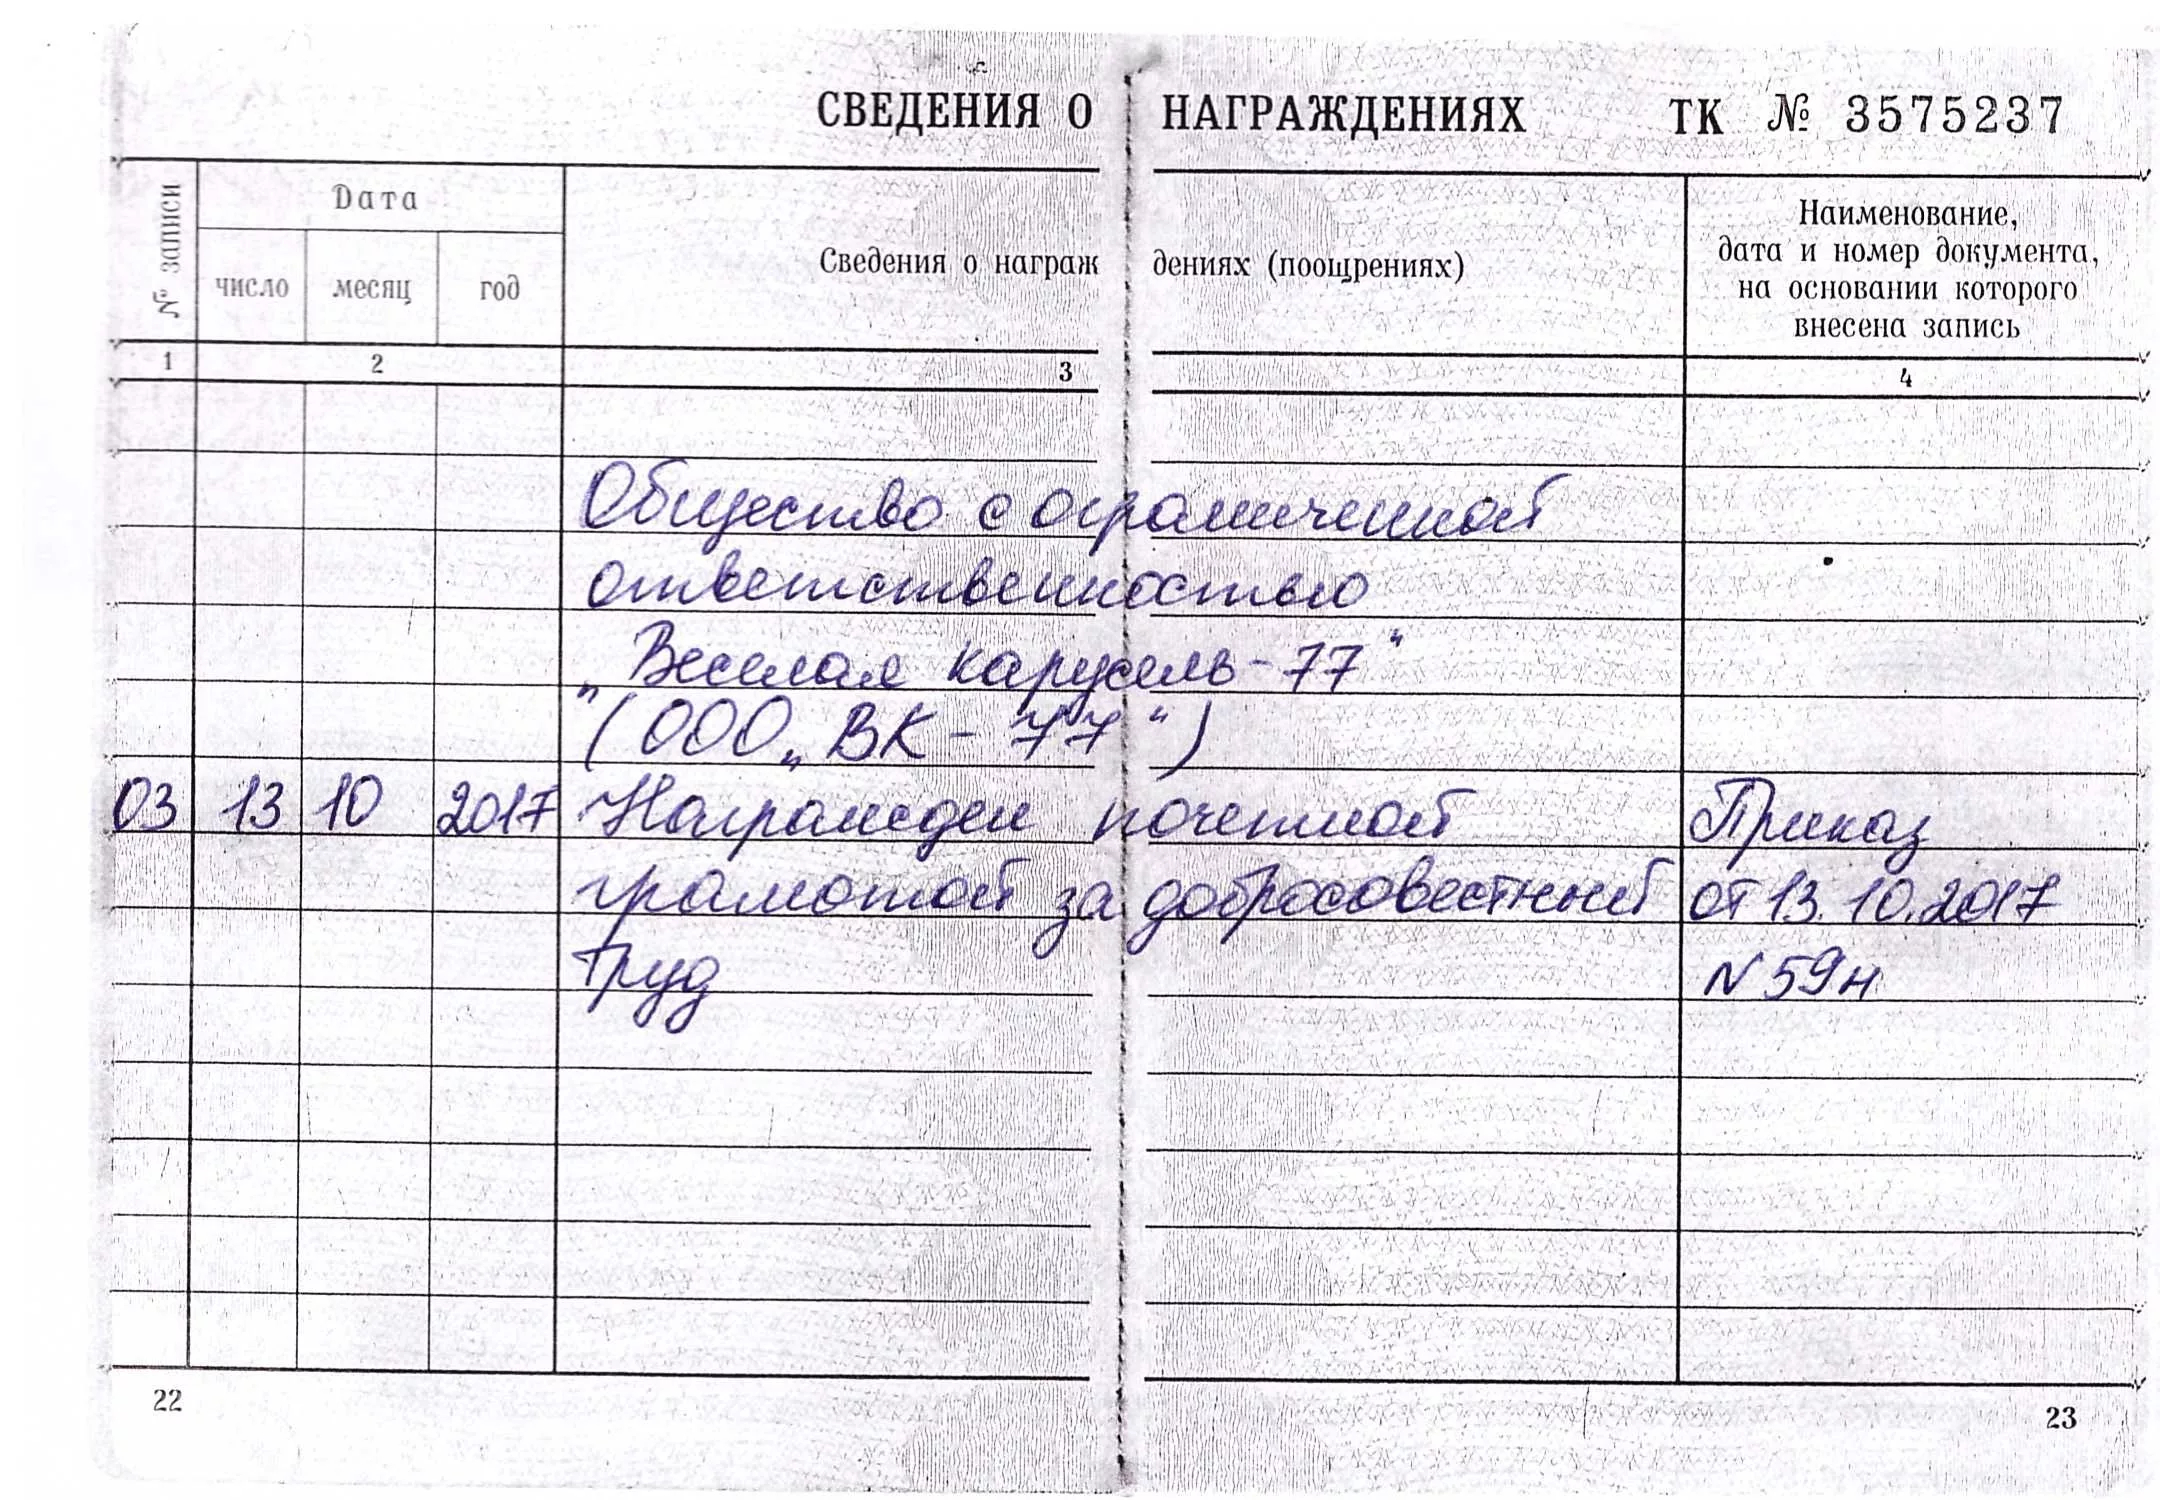 СВЕДЕНИЯ О НАГРАЖДЕНИЯХ ТК № 3575237
№ записи
Дата
число месяц год
Сведения о награждениях (поощрениях)
Наименование,
дата и номер документа,
на основании которого
внесена запись
1 2 3 4
Общество с ограниченной
ответственностью
„Веселая карусель-77“
(ООО „ВК-77“)
03 13 10 2017 Награжден почетной Приказ
грамотой за добросовестный от 13.10.2017
труд N 59н
22 23